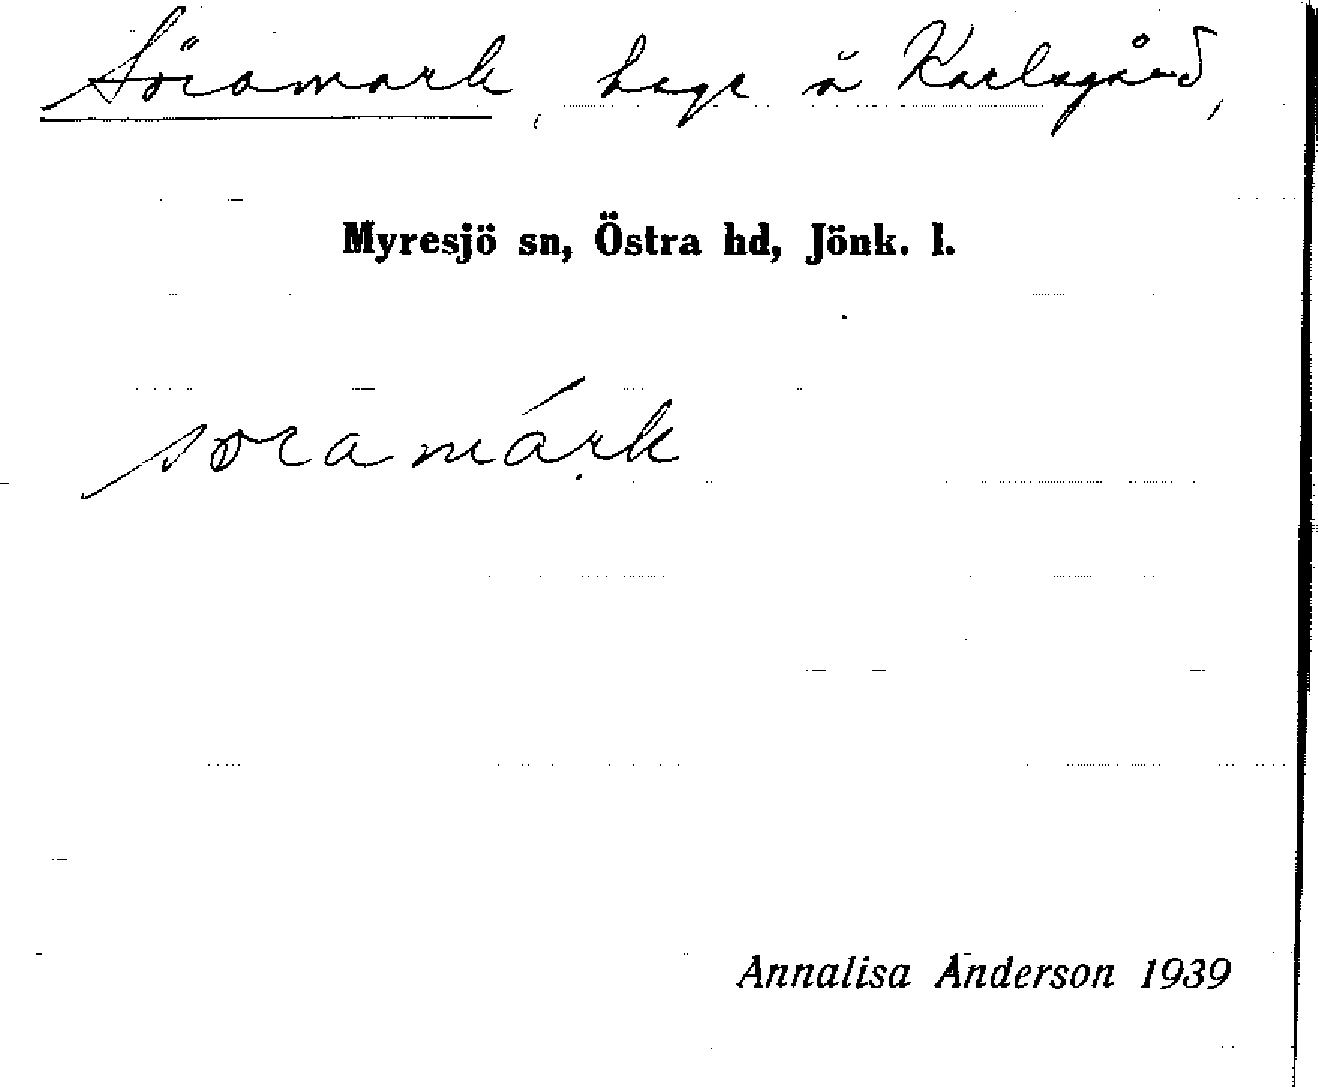 Söramark, hage å Karlsgård,
Myresjö sn, Östra hd, Jönk. l.
søramárk
Annalisa Anderson 1939